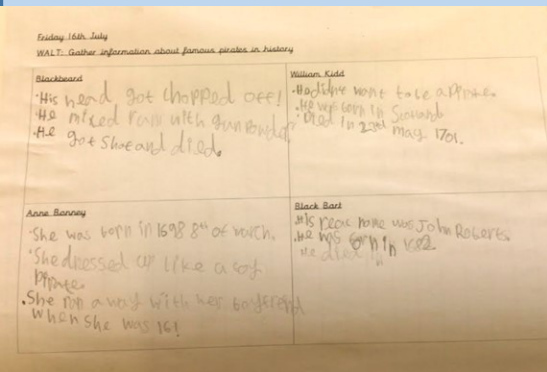 Friday 16th July
WALT: Gather information about famous pirates in history
Blackbeard
·His head got chopped off!
·He mixed rum with gunpowder
·He got shot and died.
William Kidd
·He didnt want to be a pirate.
·He was born in Scotland
·Died in 23rd may 1701.
Anne Bonney
·She was born in 1698 8th of march.
·She dressed up like a boy
pirate.
·She ran away with her boyfriend
when she was 16!
Black Bart
·His real name was John Roberts.
·He was born in 1682
He died in